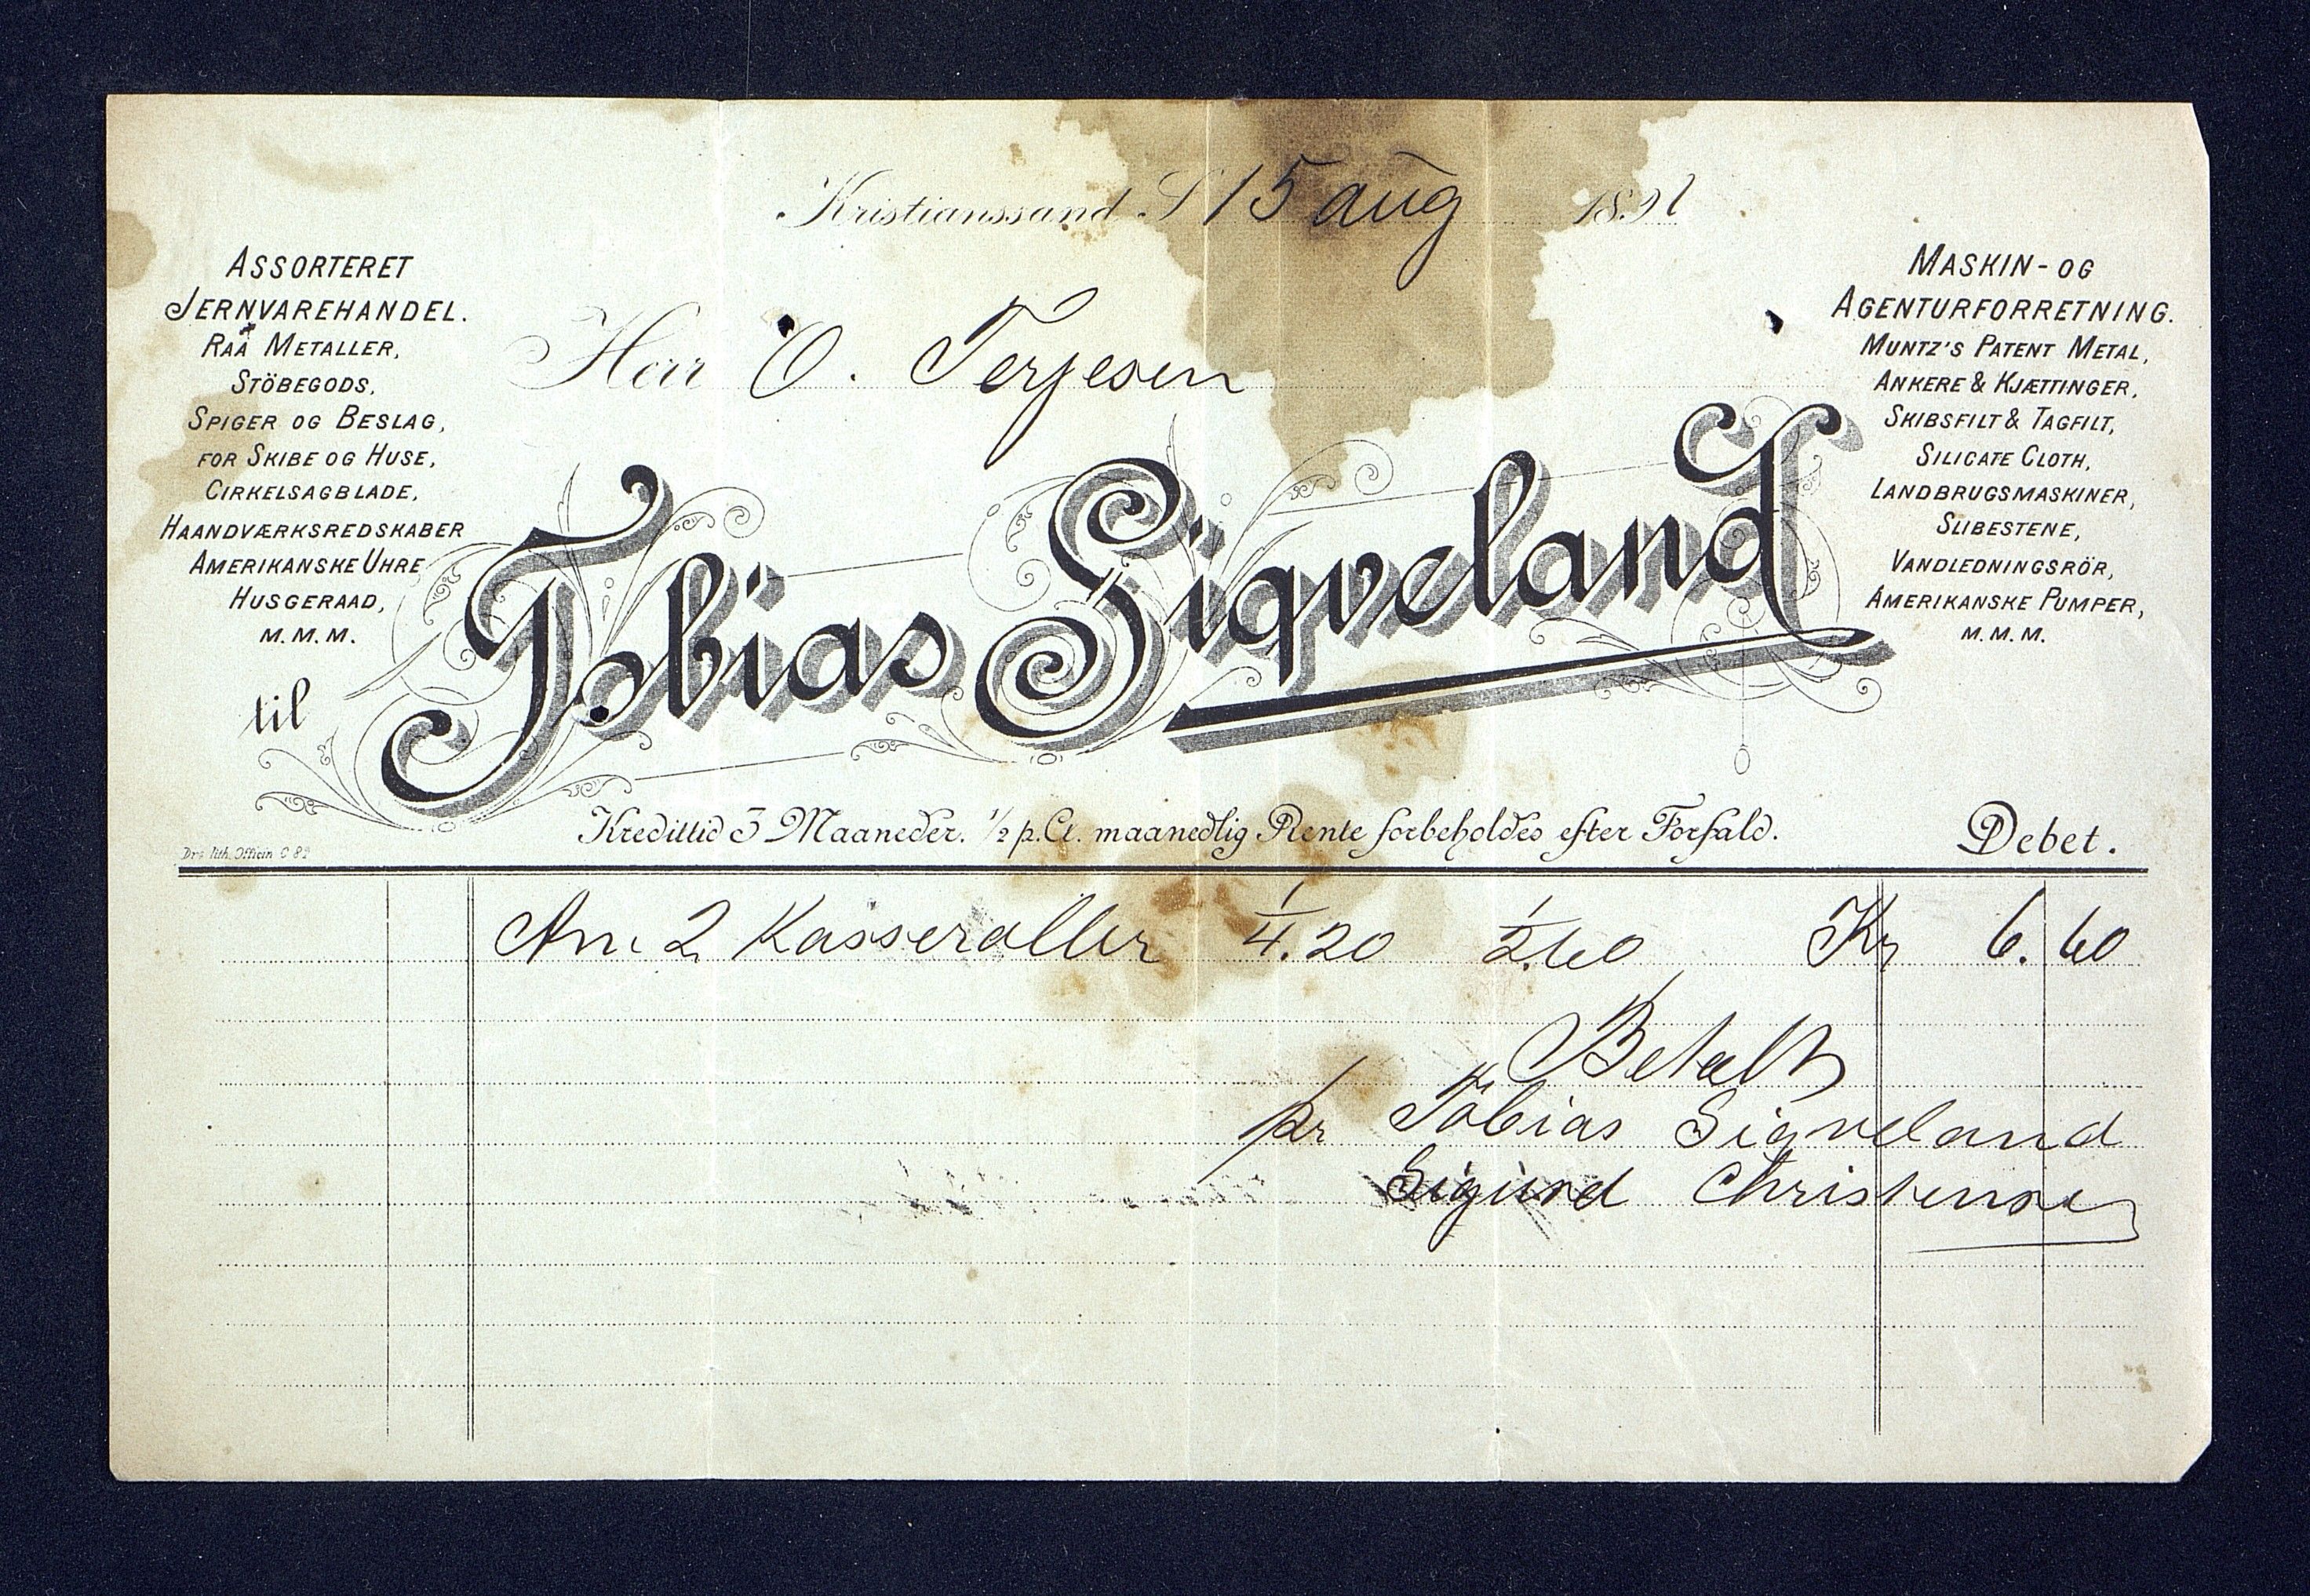 Kristianssand S 15 aug 1891
ASSORTERET
JERNVAREHANDEL.
RAA METALLER,
STÖBEGODS,
SPIGER OG BESLAG,
FOR SKIBE OG HUSE,
CIRKELSAGBLADE,
HAANDVÆRKSREDSKABER
AMERIKANSKE UHRE
HUSGERAAD,
M. M. M.
MASKIN- OG
AGENTURFORRETNING.
MUNTZ'S PATENT METAL,
ANKERE & KJÆTTINGER,
SKIBSFILT & TAGFILT,
SILICATE CLOTH,
LANDBRUGSMASKINER,
SLIBESTENE,
VANDLEDNINGSRÖR,
AMERIKANSKE PUMPER,
M. M. M.
Herr O. Terjesen
til Tobias Sigveland
Kredittid 3 Maaneder. 1/2 p.Ct. maanedlig Rente forbeholdes efter Forfald. Debet.
lith. Officin
An 2 Kasseroller 1/4.20 1/2.60 Kr 6.60
Betalt
pr Tobias Sigveland
Sigurd Christensen